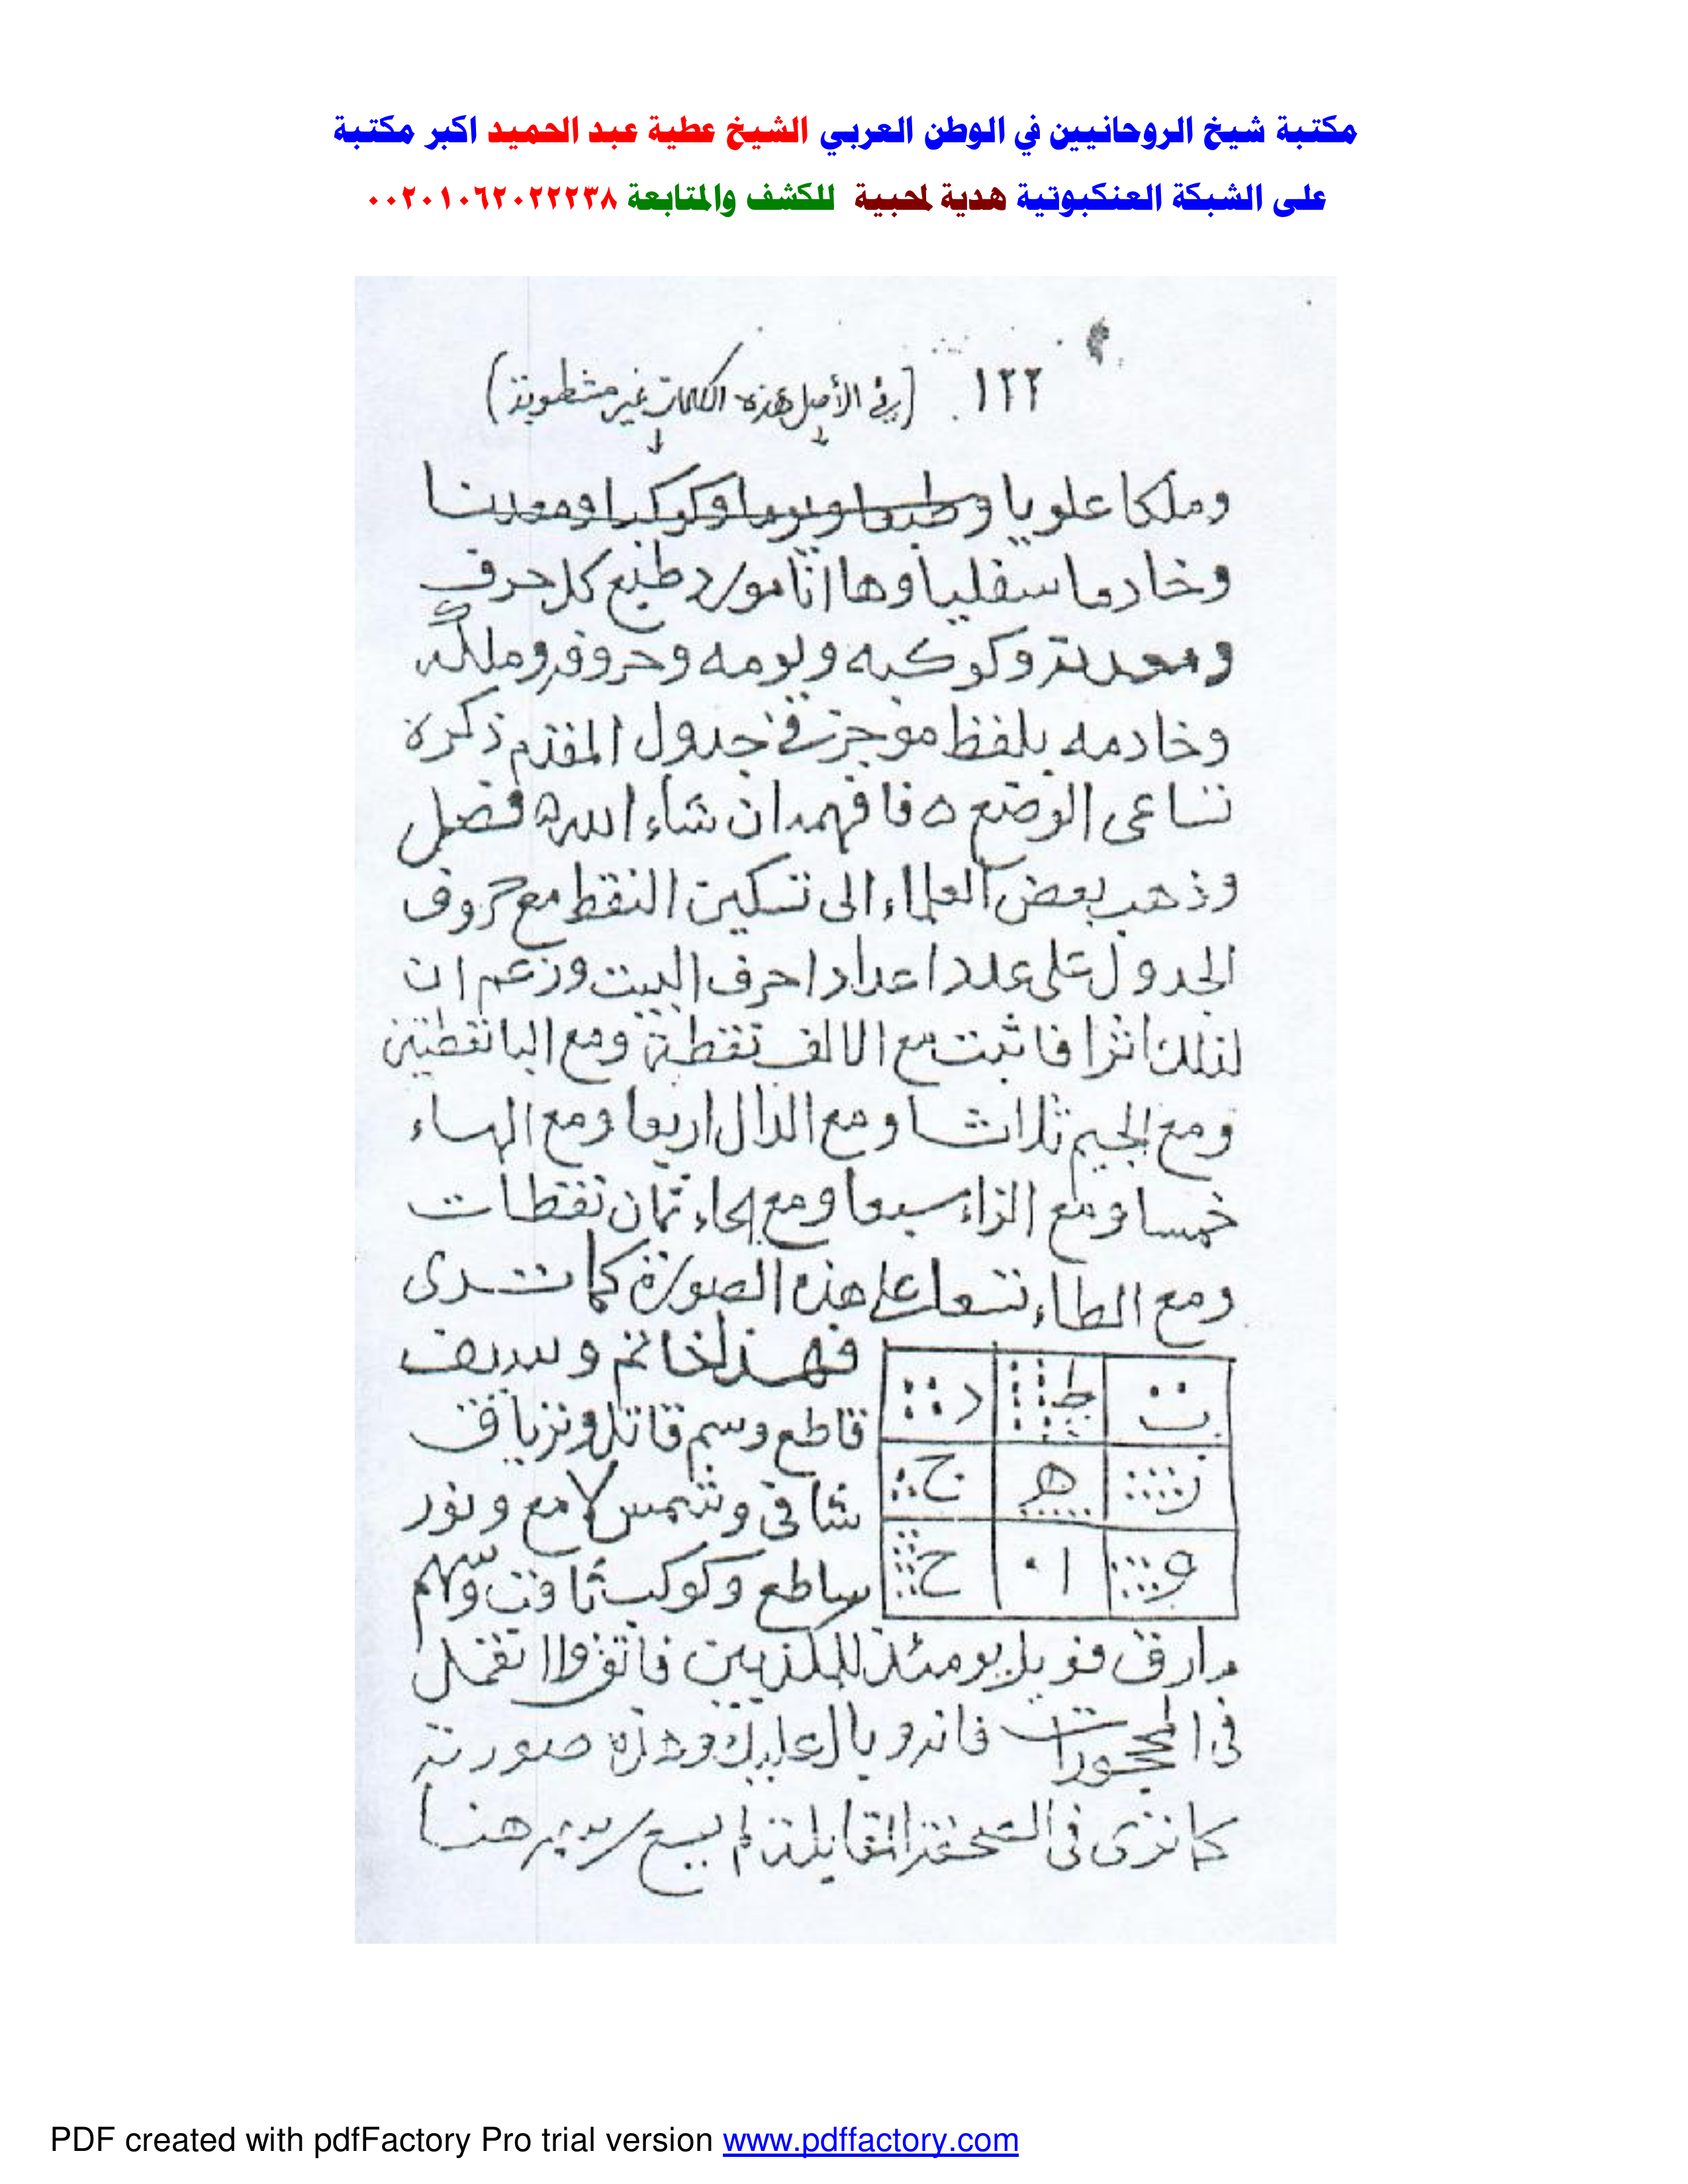 مكتبة شيخ الروحانيين في الوطن العربي الشيخ عطية عبد الحميد اكبر مكتبة
على الشبكة العنكبوتية هدية لمحبية للكشف والمتابعة ٠٠٢٠١٠٦٢٠٢٢٢٣٨
١٢٢ (في الأصل هذه الكلمات غير مشطوبة)
وملكا علويا وطبعا ويوما وكوكبا ومعدنا
وخادما سفليا وها انا مورد طبع كل حرف
ومعدنه وكوكبه ويومه وحروفه وملكه
وخادمه بلفظ موجز في جدول المقدم ذكره
تساعى الوضع ه فافهمه ان شاء الله ه فصل
وذهب بعض العلماء الى تسكين النقط مع حروف
الجدول على عدد اعداد احرف البيت وزعم ان
لذلك اثرا فاثبت مع الالف نقطة ومع البا نقطتين
ومع الجيم ثلاثا ومع الدال اربعا ومع الهاء
خمسا ومع الزاء سبعا ومع الحاء ثمان نقطات
ومع الطاء تسعا على هذه الصورة كما تــرى
ب ط د
ز ه ج
و ا ح
فهـذا لخاتم وسيف
قاطع وسم قاتل وترياق
شافي وشمس لامع ونور
ساطع وكوكب ثاقب وسهم
مارق فويل يومئذ للمكذبين فاتقوا تعمل
في المحجورات فانه وبال عليك وهذه صورته
كما ترى في الصحفة المقابلة لم يسع هنا
PDF created with pdfFactory Pro trial version www.pdffactory.com